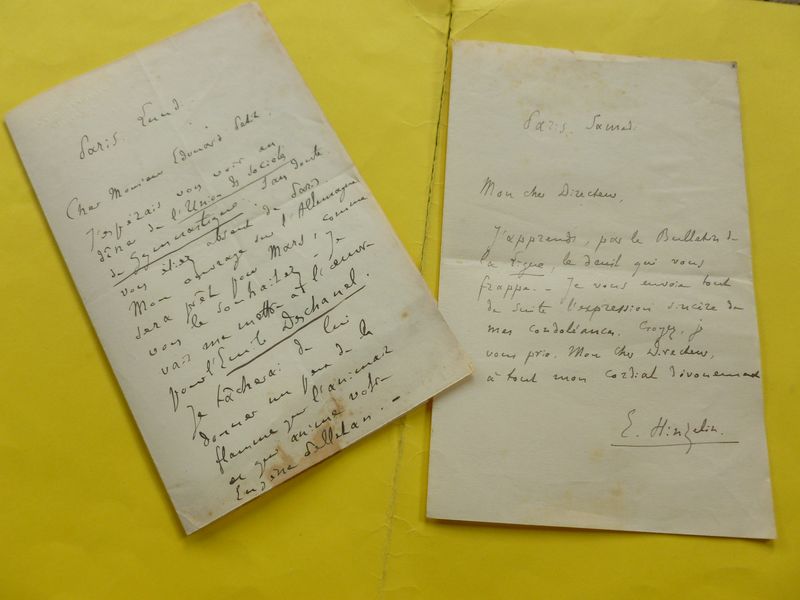 Paris. Lundi.
Cher Monsieur Edouard Petit,
J'espérais vous voir au
dîner de l'Union de Sociétés
de Gymnastique. Sans doute
vous étiez absent de Paris
Mon ouvrage sur l'Allemagne
sera prêt pour Mars, comme
vous le souhaitez - Je
vais me mettre à l'œuvre
pour l'Emile Deschanel.
Je tâcherai de lui
donner un peu de la
flamme qui l'animait
et qui anime votre
Eugène Pelletan. -
Paris. Samedi.
Mon cher Directeur,
J'apprends, par le Bulletin de
la Ligue, le deuil qui vous
frappe. - Je vous envoie tout
de suite l'expression sincère de
mes condoléances. Croyez, je
vous prie, Mon cher Directeur,
à tout mon cordial dévouement
E. Hinzelin.